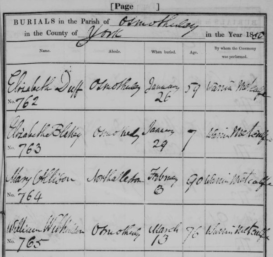 [Page]
BURIALS in the Parish of Osmotherley
in the County of York in the Year 1850
Name. Abode. When buried. Age. By whom the Ceremony was performed.
Elizabeth Duff Osmotherley January 26 59 Warrin Metcalfe
No. 762
Elizabeth Blakey Osmotherley January 29 Warrin Metcalfe
No. 763
Mary Collison Northallerton Febry 3 90 Warrin Metcalfe
No. 764
William Wilkinson Osmotherley March 13 75 Warrin Metcalfe
No. 765